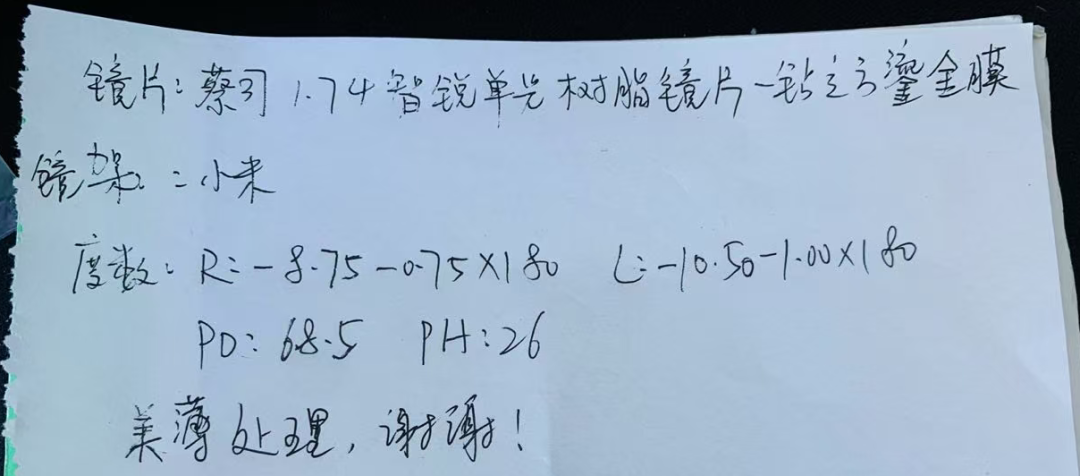 镜片：蔡司 1.74智锐单光树脂镜片-钻立方鎏金膜
镜架：小米
度数：R：-8.75-0.75×180 L：-10.50-1.00×180
PD：68.5 PH：26
美薄处理，谢谢！